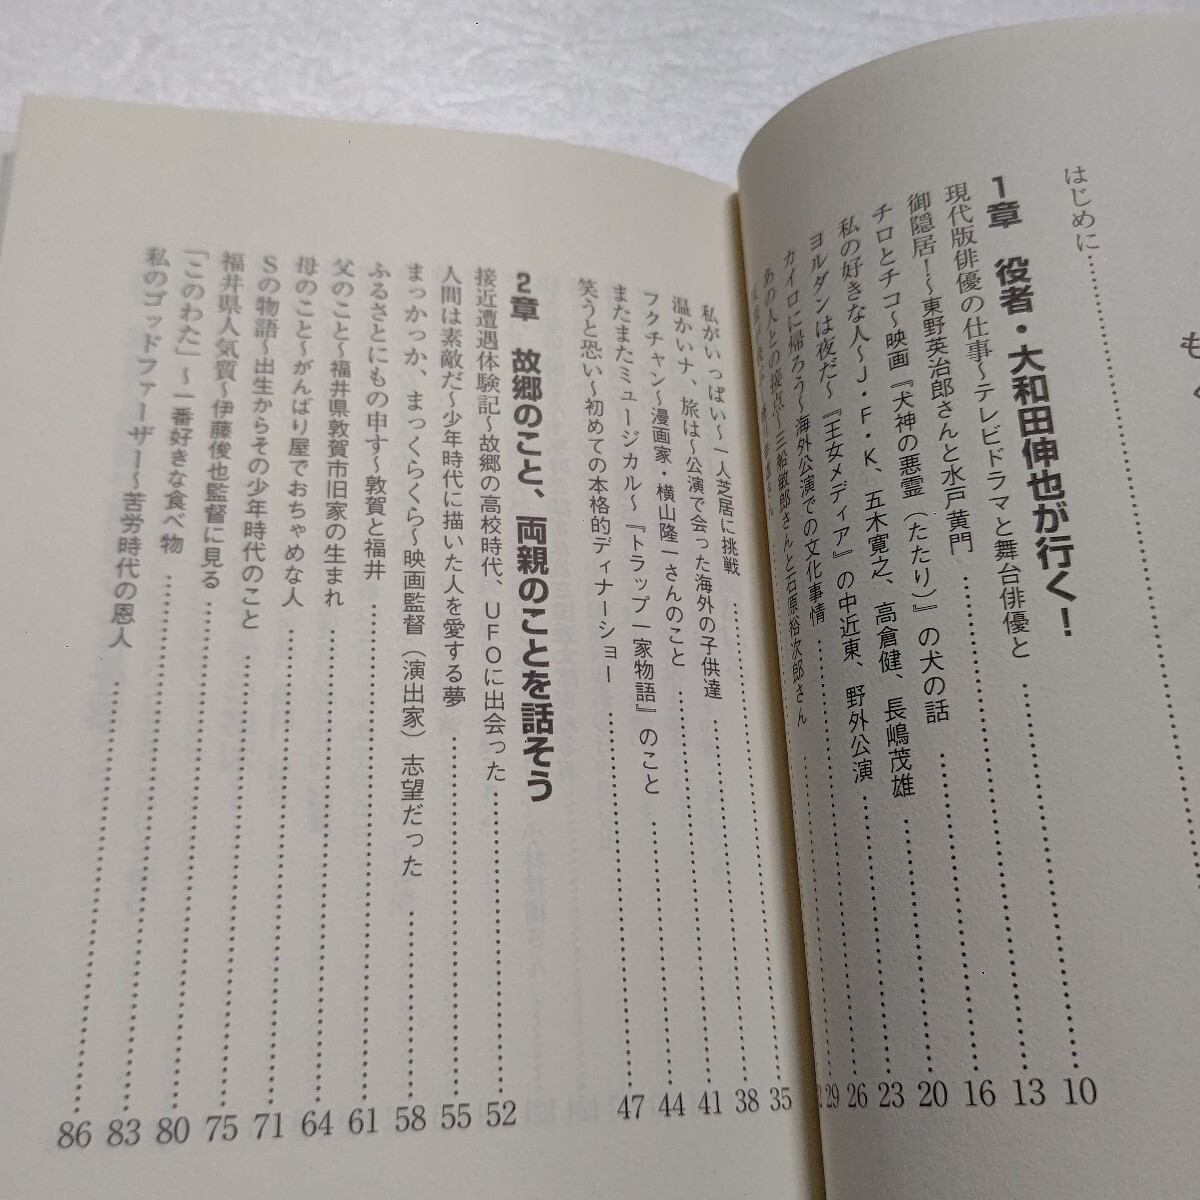 も
く
はじめに……………
1章 役者・大和田伸也が行く！
現代版俳優の仕事～テレビドラマと舞台俳優と……………10
御隠居！～東野英治郎さんと水戸黄門……………13
チロとチコ～映画『犬神の悪霊（たたり）』の犬の話……………16
私の好きな人～J・F・K、五木寛之、高倉健、長嶋茂雄……………20
ヨルダンは夜だ～『王女メディア』の中近東、野外公演……………23
カイロに帰ろう～海外公演での文化事情……………26
あの人との接点～三船敏郎さんと石原裕次郎さん……………29
私がいっぱい～一人芝居に挑戦……………35
温かいナ、旅は～公演で会った海外の子供達……………38
フクチャン～漫画家・横山隆一さんのこと……………41
またまたミュージカル～『トラップ一家物語』のこと……………44
笑うと恐い～初めての本格的ディナーショー……………47
2章 故郷のこと、両親のことを話そう
接近遭遇体験記～故郷の高校時代、UFOに出会った……………52
人間は素敵だ～少年時代に描いた人を愛する夢……………55
まっかっか、まっくらくら～映画監督（演出家）志望だった……………58
ふるさとにもの申す～敦賀と福井……………61
父のこと～福井県敦賀市旧家の生まれ……………64
母のこと～がんばり屋でおちゃめな人……………71
Sの物語～出生からその少年時代のこと……………75
福井県人気質～伊藤俊也監督に見る……………80
「このわた」～一番好きな食べ物……………83
私のゴッドファーザー～苦労時代の恩人……………86